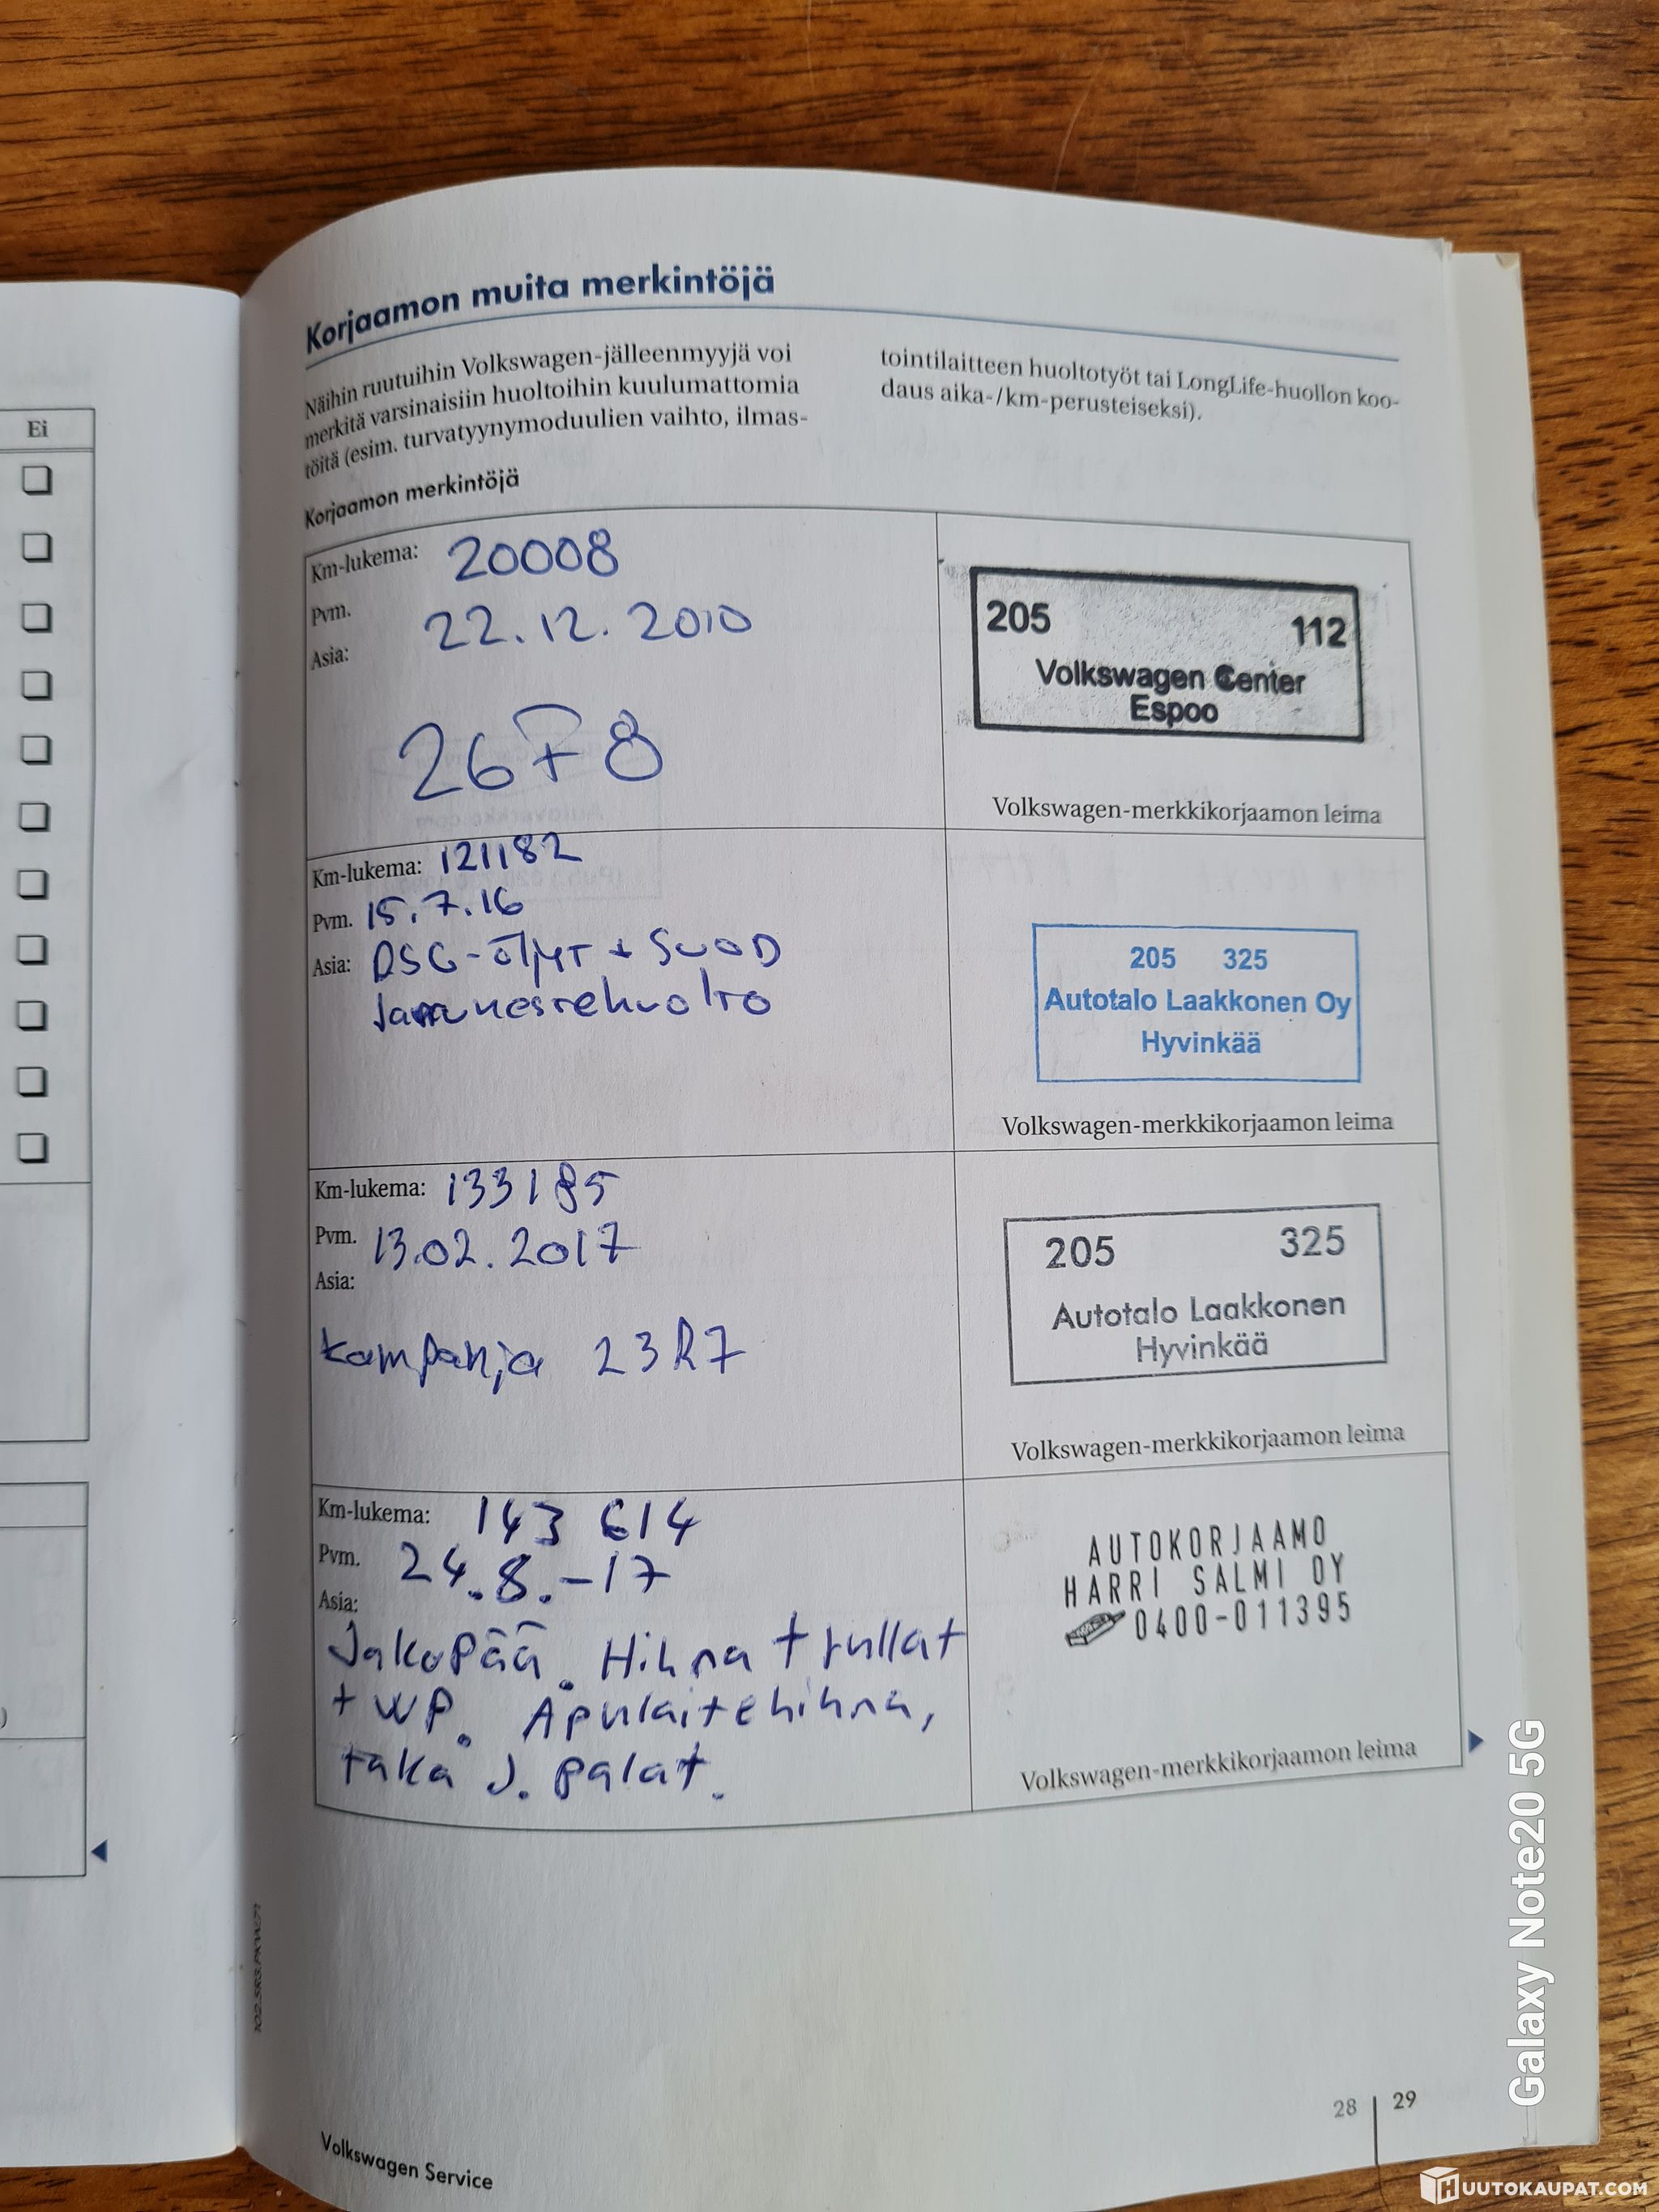 Korjaamon muita merkintöjä
Näihin ruutuihin Volkswagen-jälleenmyyjä voi
merkitä varsinaisiin huoltoihin kuulumattomia
töitä (esim. turvatyynymoduulien vaihto, ilmas-
tointilaitteen huoltotyöt tai LongLife-huollon koo-
daus aika-/km-perusteiseksi).
Ei
Korjaamon merkintöjä
Km-lukema: 20008
Pvm. 22.12.2010
Asia:
26F8
205 112
Volkswagen Center
Espoo
Volkswagen-merkkikorjaamon leima
Km-lukema: 121182
Pvm. 15.7.16
Asia: DSG-öljyt + SUOD
205 325
Autotalo Laakkonen Oy
Hyvinkää
Volkswagen-merkkikorjaamon leima
Km-lukema: 133185
Pvm. 13.02.2017
Asia:
kampanja 23R7
205 325
Autotalo Laakkonen
Hyvinkää
Volkswagen-merkkikorjaamon leima
Km-lukema: 143 614
Pvm. 24.8.-17
Asia:
Jakopää. Hihna + rullat
+ WP. Apulaitehihna,
taka J. palat.
AUTOKORJAAMO
HARRI SALMI OY
0400-011395
Volkswagen-merkkikorjaamon leima
28 | 29
Volkswagen Service
Galaxy Note20 5G
HUUTOKAUPAT.COM